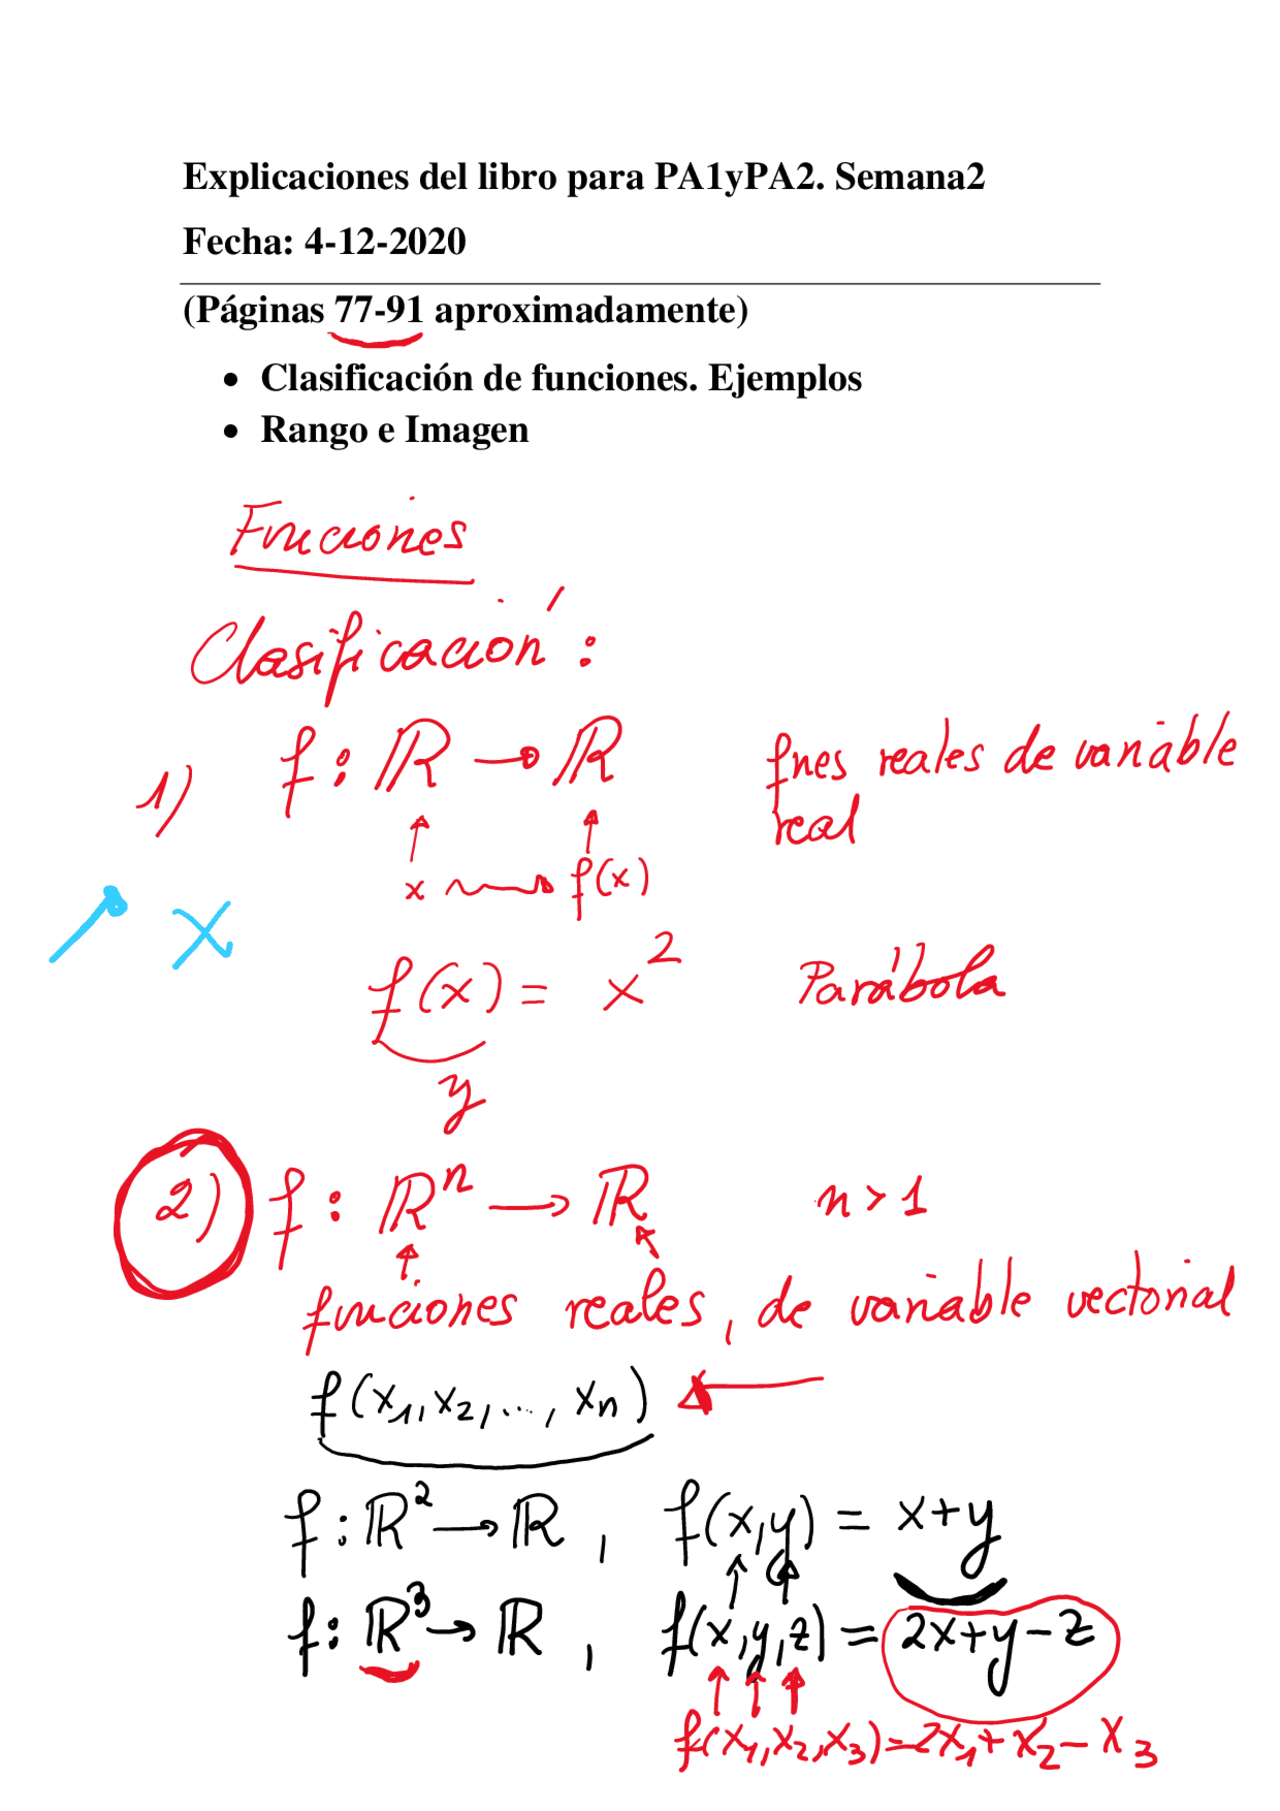 Explicaciones del libro para PA1yPA2. Semana2
Fecha: 4-12-2020
(Páginas 77-91 aproximadamente)
• Clasificación de funciones. Ejemplos
• Rango e Imagen
Funciones
Clasificación:
1) f: ℝ → ℝ fnes reales de variable
real
↑ ↑
x ⇝ f(x)
↗ X
f(x) = x² Parábola
y
2) f: ℝⁿ → ℝ n > 1
funciones reales, de variable vectorial
f(x₁, x₂, ..., xₙ) ←
f: ℝ² → ℝ , f(x,y) = x+y
f: ℝ³ → ℝ , f(x,y,z) = 2x+y-z
f(x₁,x₂,x₃)=2x₁+x₂-x₃